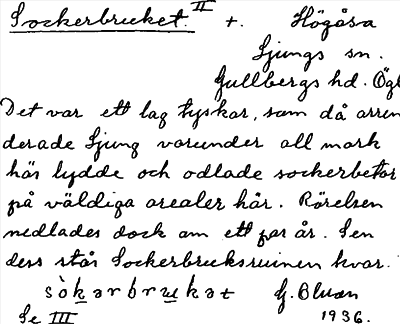 Sockerbruket. II +. Högåsa
Ljungs sn.
Gullbergs hd. Ögl
Det var ett lag tyskar, som då arren
derade Ljung varunder all mark
här lydde och odlade sockerbetor
på väldiga arealer här. Rörelsen
nedlades dock om ett par år. Sen
ders står Sockerbruksruinen kvar.
sòkərbrukət G. Bluan
Se III 1936.